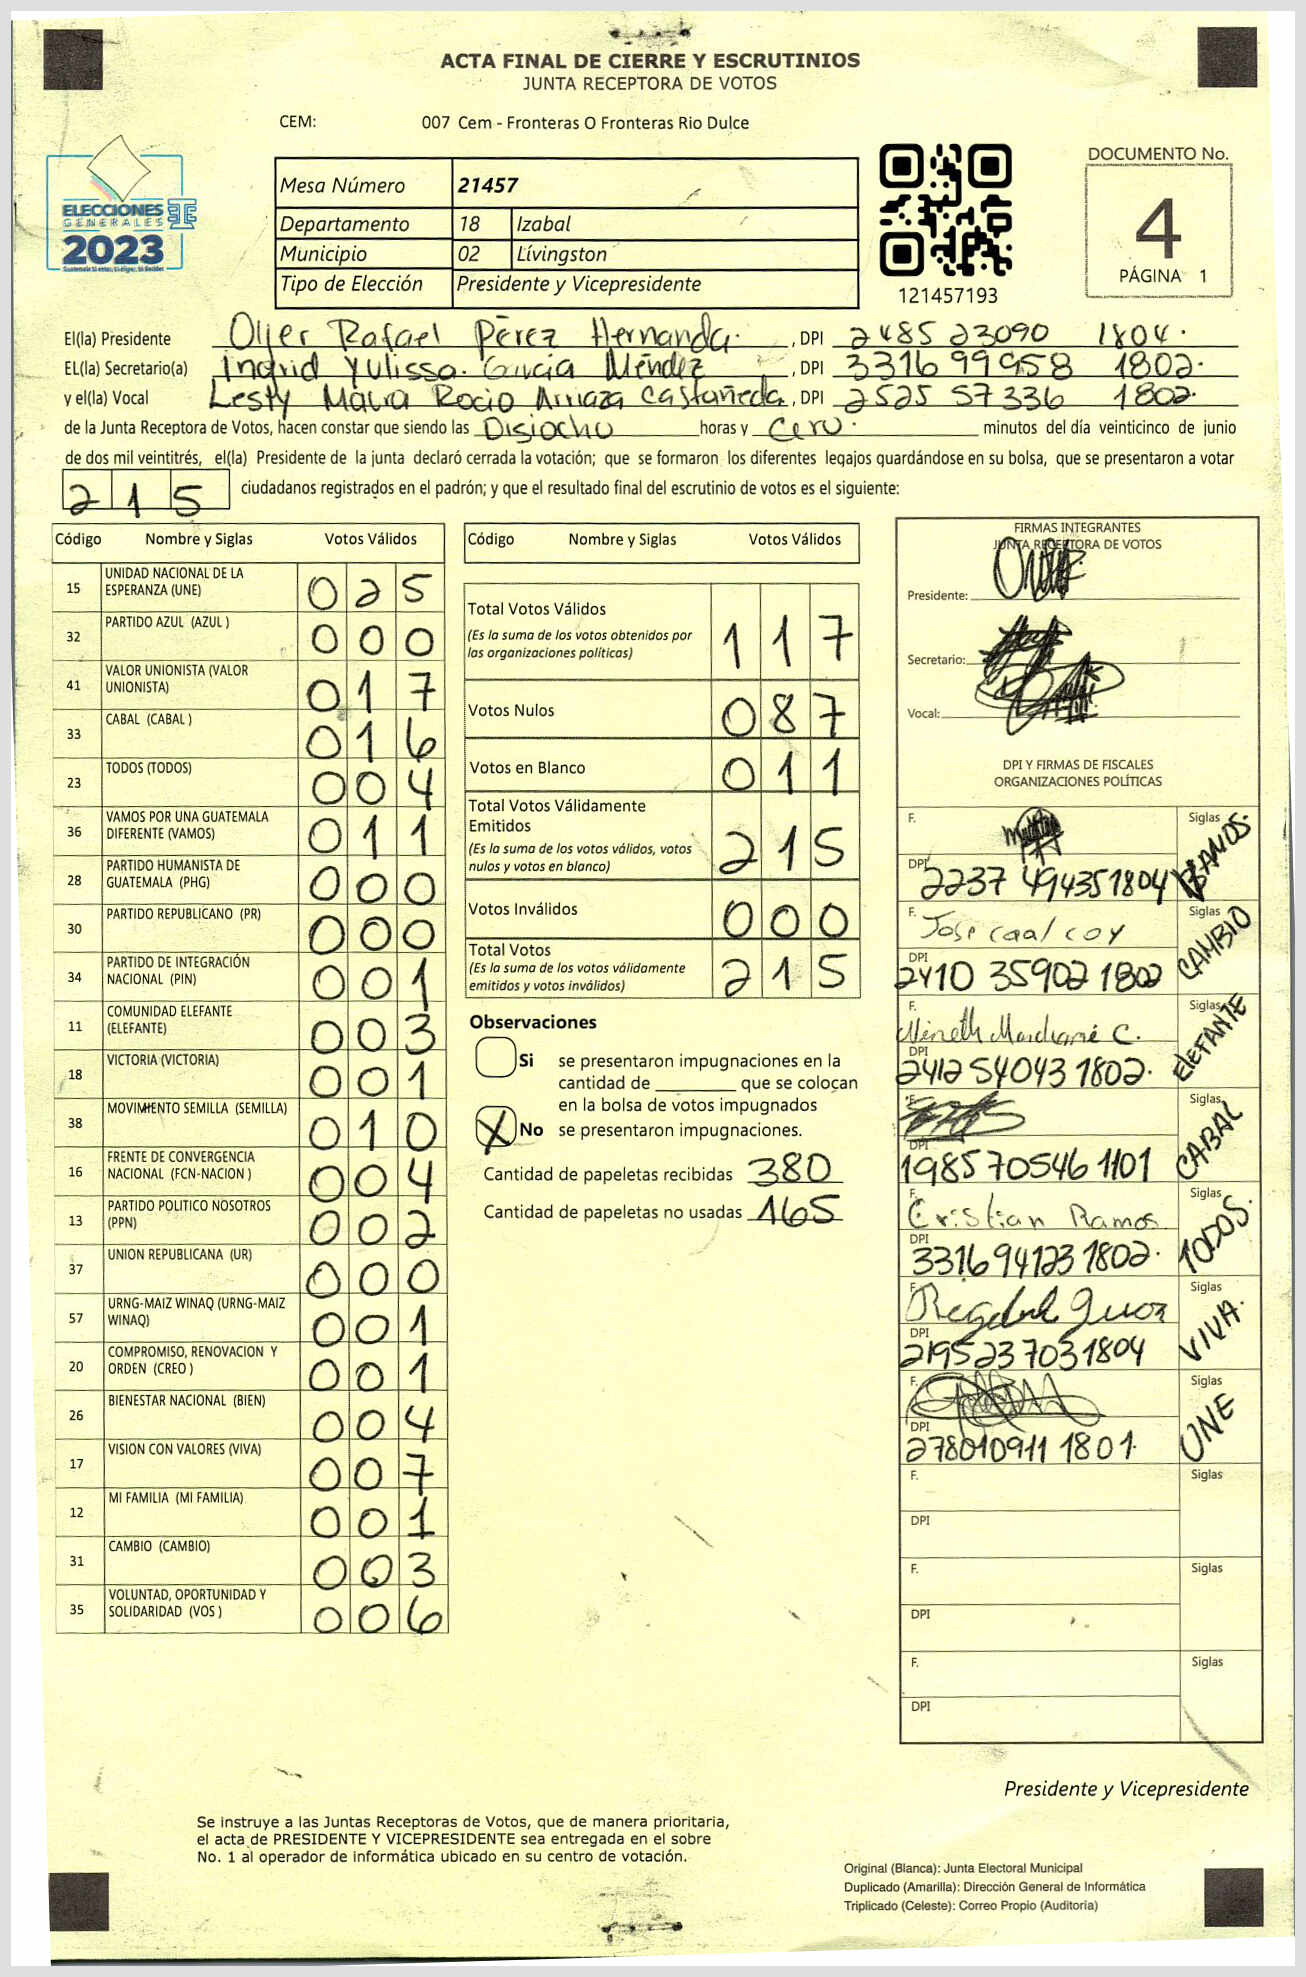 ACTA FINAL DE CIERRE Y ESCRUTINIOS
JUNTA RECEPTORA DE VOTOS
CEM: 007 Cem - Fronteras O Fronteras Rio Dulce
ELECCIONES
GENERALES
2023
Mesa Número 21457
Departamento 18 Izabal
Municipio 02 Lívingston
Tipo de Elección Presidente y Vicepresidente
121457193
DOCUMENTO No.
4
PÁGINA 1
El(la) Presidente Oljer Rafael Pérez Hernanda. , DPI 2485 23090 1804.
EL(la) Secretario(a) Ingrid Yulissa. García Méndez , DPI 3316 99958 1802.
y el(la) Vocal Lesty Maura Rocio Arriaza Castañeda , DPI 2525 57336 1802.
de la Junta Receptora de Votos, hacen constar que siendo las Disiocho horas y Cero. minutos del día veinticinco de junio
de dos mil veintitrés, el(la) Presidente de la junta declaró cerrada la votación; que se formaron los diferentes legajos guardándose en su bolsa, que se presentaron a votar
215 ciudadanos registrados en el padrón; y que el resultado final del escrutinio de votos es el siguiente:
Código Nombre y Siglas Votos Válidos
15 UNIDAD NACIONAL DE LA ESPERANZA (UNE) 025
32 PARTIDO AZUL (AZUL ) 000
41 VALOR UNIONISTA (VALOR UNIONISTA) 017
33 CABAL (CABAL ) 016
23 TODOS (TODOS) 004
36 VAMOS POR UNA GUATEMALA DIFERENTE (VAMOS) 011
28 PARTIDO HUMANISTA DE GUATEMALA (PHG) 000
30 PARTIDO REPUBLICANO (PR) 000
34 PARTIDO DE INTEGRACIÓN NACIONAL (PIN) 001
11 COMUNIDAD ELEFANTE (ELEFANTE) 003
18 VICTORIA (VICTORIA) 001
38 MOVIMIENTO SEMILLA (SEMILLA) 010
16 FRENTE DE CONVERGENCIA NACIONAL (FCN-NACION ) 004
13 PARTIDO POLITICO NOSOTROS (PPN) 002
37 UNION REPUBLICANA (UR) 000
57 URNG-MAIZ WINAQ (URNG-MAIZ WINAQ) 001
20 COMPROMISO, RENOVACION Y ORDEN (CREO ) 001
26 BIENESTAR NACIONAL (BIEN) 004
17 VISION CON VALORES (VIVA) 007
12 MI FAMILIA (MI FAMILIA) 001
31 CAMBIO (CAMBIO) 003
35 VOLUNTAD, OPORTUNIDAD Y SOLIDARIDAD (VOS ) 006
Código Nombre y Siglas Votos Válidos
Total Votos Válidos 117
(Es la suma de los votos obtenidos por
las organizaciones políticas)
Votos Nulos 087
Votos en Blanco 011
Total Votos Válidamente
Emitidos 215
(Es la suma de los votos válidos, votos
nulos y votos en blanco)
Votos Inválidos 000
Total Votos 215
(Es la suma de los votos válidamente
emitidos y votos inválidos)
Observaciones
Si se presentaron impugnaciones en la
cantidad de ________ que se colocan
en la bolsa de votos impugnados
X No se presentaron impugnaciones.
Cantidad de papeletas recibidas 380
Cantidad de papeletas no usadas 165
FIRMAS INTEGRANTES
JUNTA RECEPTORA DE VOTOS
Presidente:
Secretario:
Vocal:
DPI Y FIRMAS DE FISCALES
ORGANIZACIONES POLÍTICAS
F. Siglas VAMOS.
DPI 2237 49435 1804
F. Jose caal coy Siglas CAMBIO
DPI 2410 35902 1802
F. Siglas ELEFANTE
DPI 2412 54043 1802.
F. Siglas CABAL
DPI 1985 70546 1101
F. Cristian Ramos Siglas TODOS.
DPI 3316 94123 1802.
F. Siglas VIVA.
DPI 2195 23703 1804
F. Siglas UNE
DPI 2780 10911 1801.
F. Siglas
DPI
F. Siglas
DPI
F. Siglas
DPI
Presidente y Vicepresidente
Se instruye a las Juntas Receptoras de Votos, que de manera prioritaria,
el acta de PRESIDENTE Y VICEPRESIDENTE sea entregada en el sobre
No. 1 al operador de informática ubicado en su centro de votación.
Original (Blanca): Junta Electoral Municipal
Duplicado (Amarilla): Dirección General de Informática
Triplicado (Celeste): Correo Propio (Auditoría)